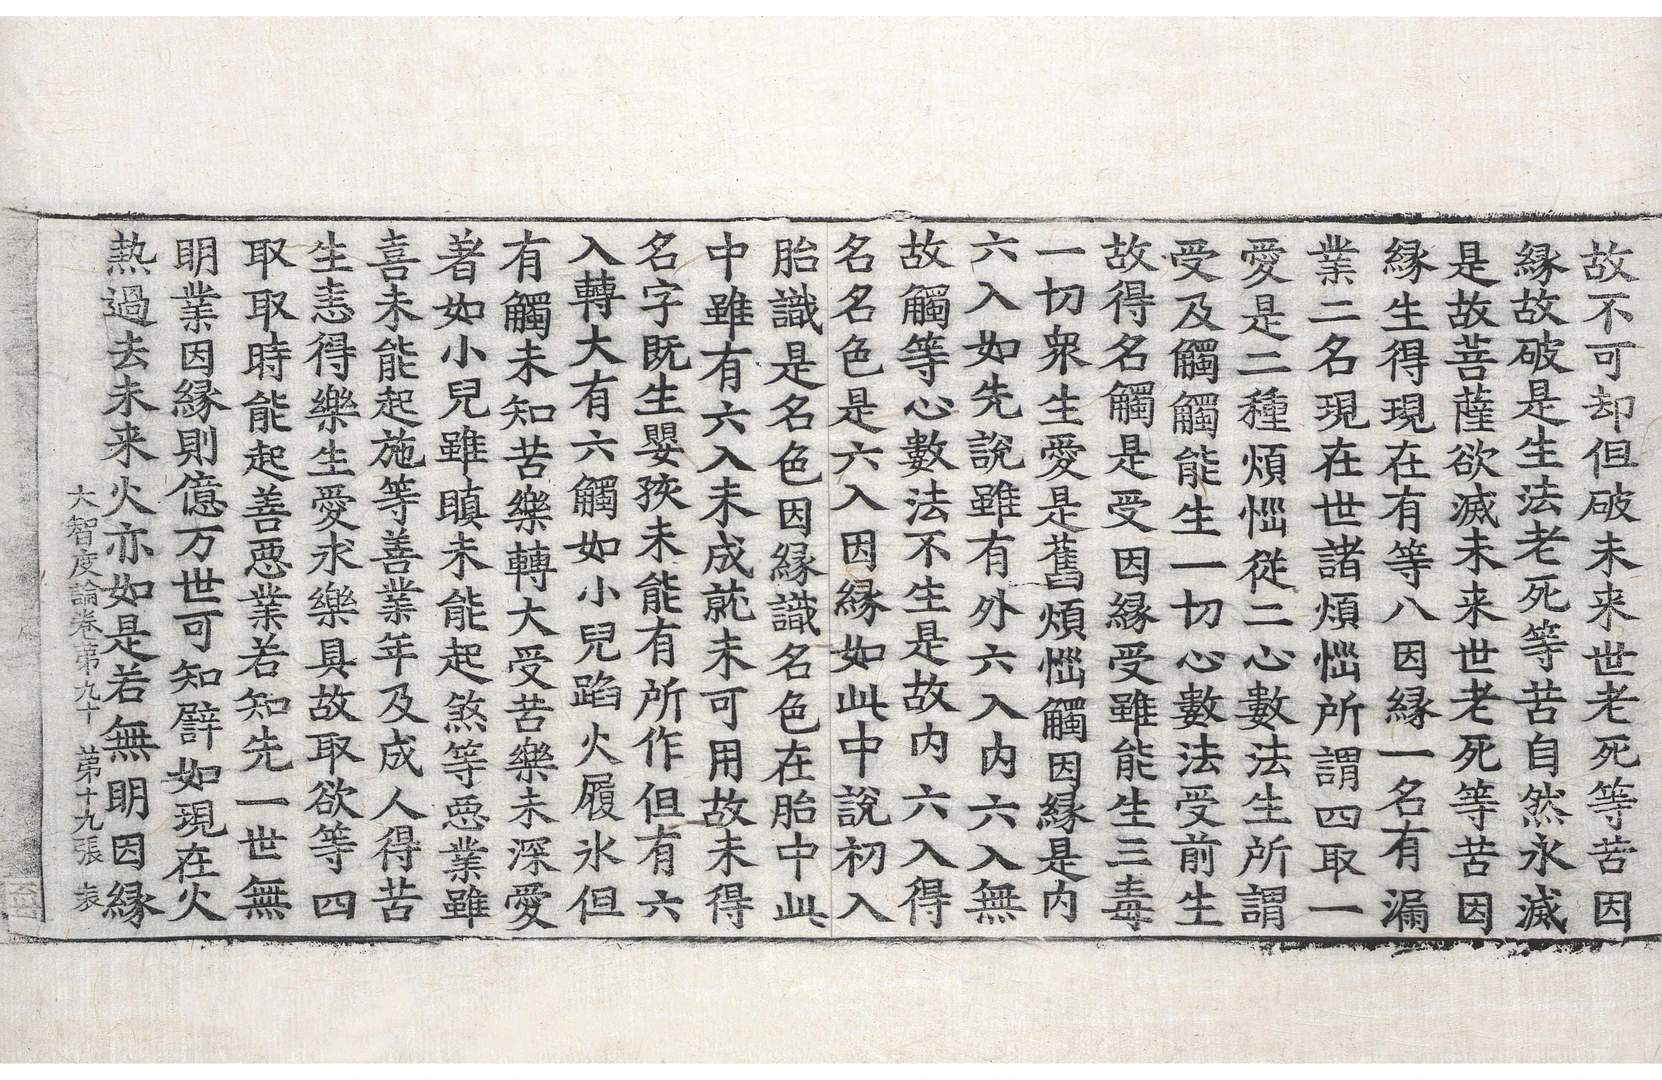 故不可却但破未来世老死等苦因
縁故破是生法老死等苦自然永滅
是故菩薩欲滅未来世老死等苦因
縁生得現在有等八因縁一名有漏
業二名現在世諸煩惱所謂四取一
愛是二種煩惱從二心數法生所謂
受及觸觸能生一切心數法受前生
故得名觸是受因縁受雖能生三毒
一切衆生愛是舊煩惱觸因縁是内
六入如先說雖有外六入内六入無
故觸等心數法不生是故内六入得
名名色是六入因縁如此中說初入
胎識是名色因縁識名色在胎中此
中雖有六入未成就未可用故未得
名字既生嬰孩未能有所作但有六
入轉大有六觸如小兒蹈火履氷但
有觸未知苦樂轉大受苦樂未深愛
著如小兒雖瞋未能起煞等惡業雖
喜未能起施等善業年及成人得苦
生恚得樂生愛求樂具故取欲等四
取取時能起善惡業若知先一世無
明業因縁則億万世可知譬如現在火
熱過去未来火亦如是若無明因縁
大智度論卷第九十 第十九張 表